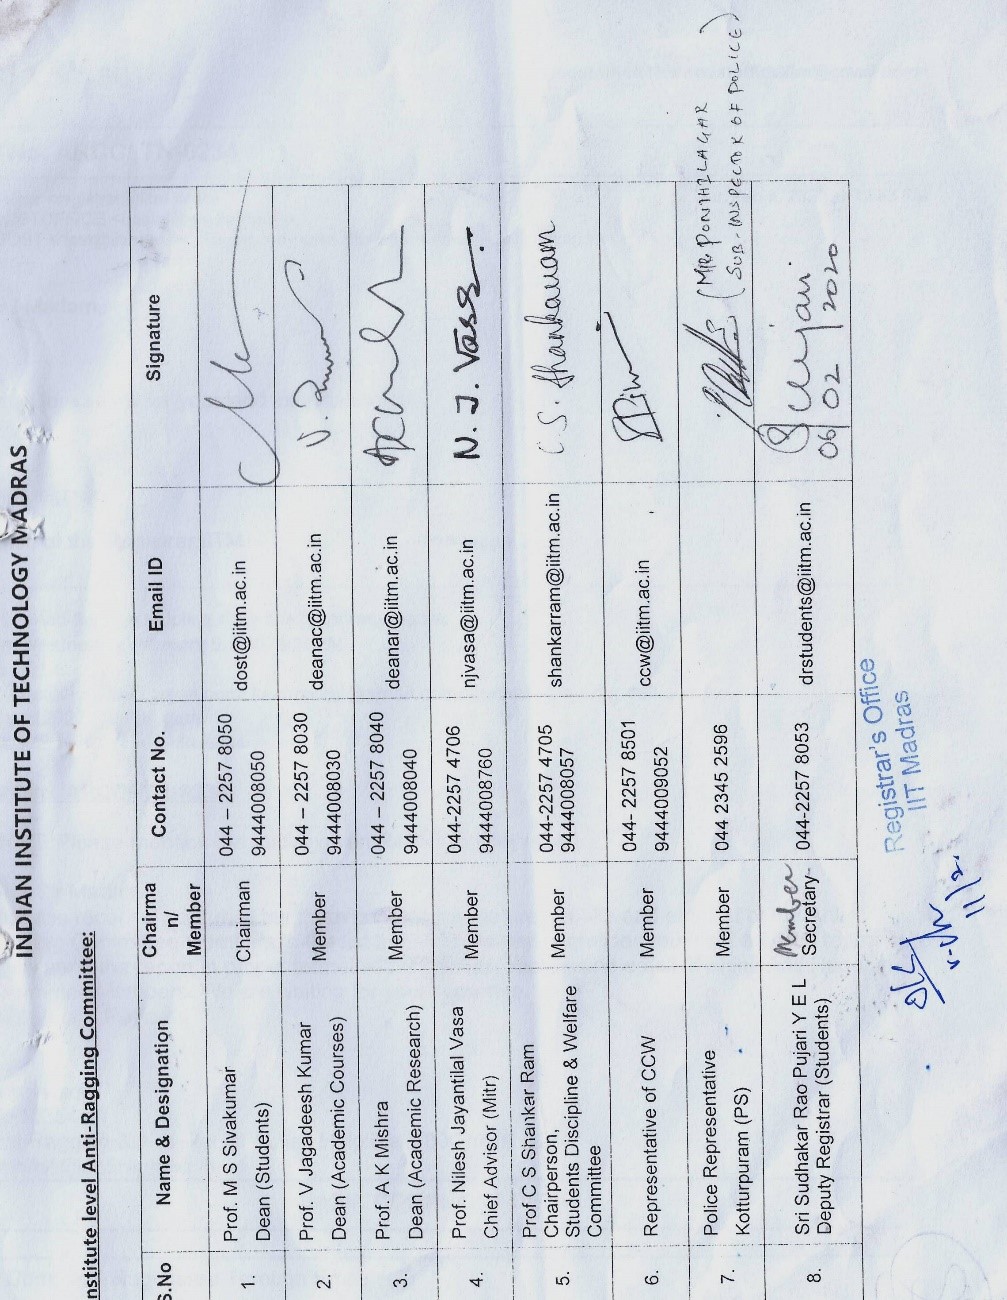 INDIAN INSTITUTE OF TECHNOLOGY MADRAS
nstitute level Anti-Ragging Committee:
S.No Name & Designation Chairma n/ Member Contact No. Email ID Signature
1. Prof. M S Sivakumar Chairman 044 – 2257 8050 dost@iitm.ac.in
Dean (Students) 9444008050
2. Prof. V Jagadeesh Kumar Member 044 – 2257 8030 deanac@iitm.ac.in
Dean (Academic Courses) 9444008030
3. Prof. A K Mishra Member 044 – 2257 8040 deanar@iitm.ac.in
Dean (Academic Research) 9444008040
4. Prof. Nilesh Jayantilal Vasa Member 044-2257 4706 njvasa@iitm.ac.in N. J. Vasa
Chief Advisor (Mitr) 9444008760
5. Prof C S Shankar Ram Member 044-2257 4705 shankarram@iitm.ac.in C.S. Shankarram
Chairperson, 9444008057
Students Discipline & Welfare
Committee
6. Representative of CCW Member 044- 2257 8501 ccw@iitm.ac.in
9444009052
7. Police Representative Member 044 2345 2596 (MR PONAZLAGAR
Kotturpuram (PS) SUB-INSPECTOR OF POLICE)
8. Sri Sudhakar Rao Pujari Y E L Member Secretary 044-2257 8053 drstudents@iitm.ac.in
Deputy Registrar (Students) 06/02/2020
Registrar's Office
IIT Madras